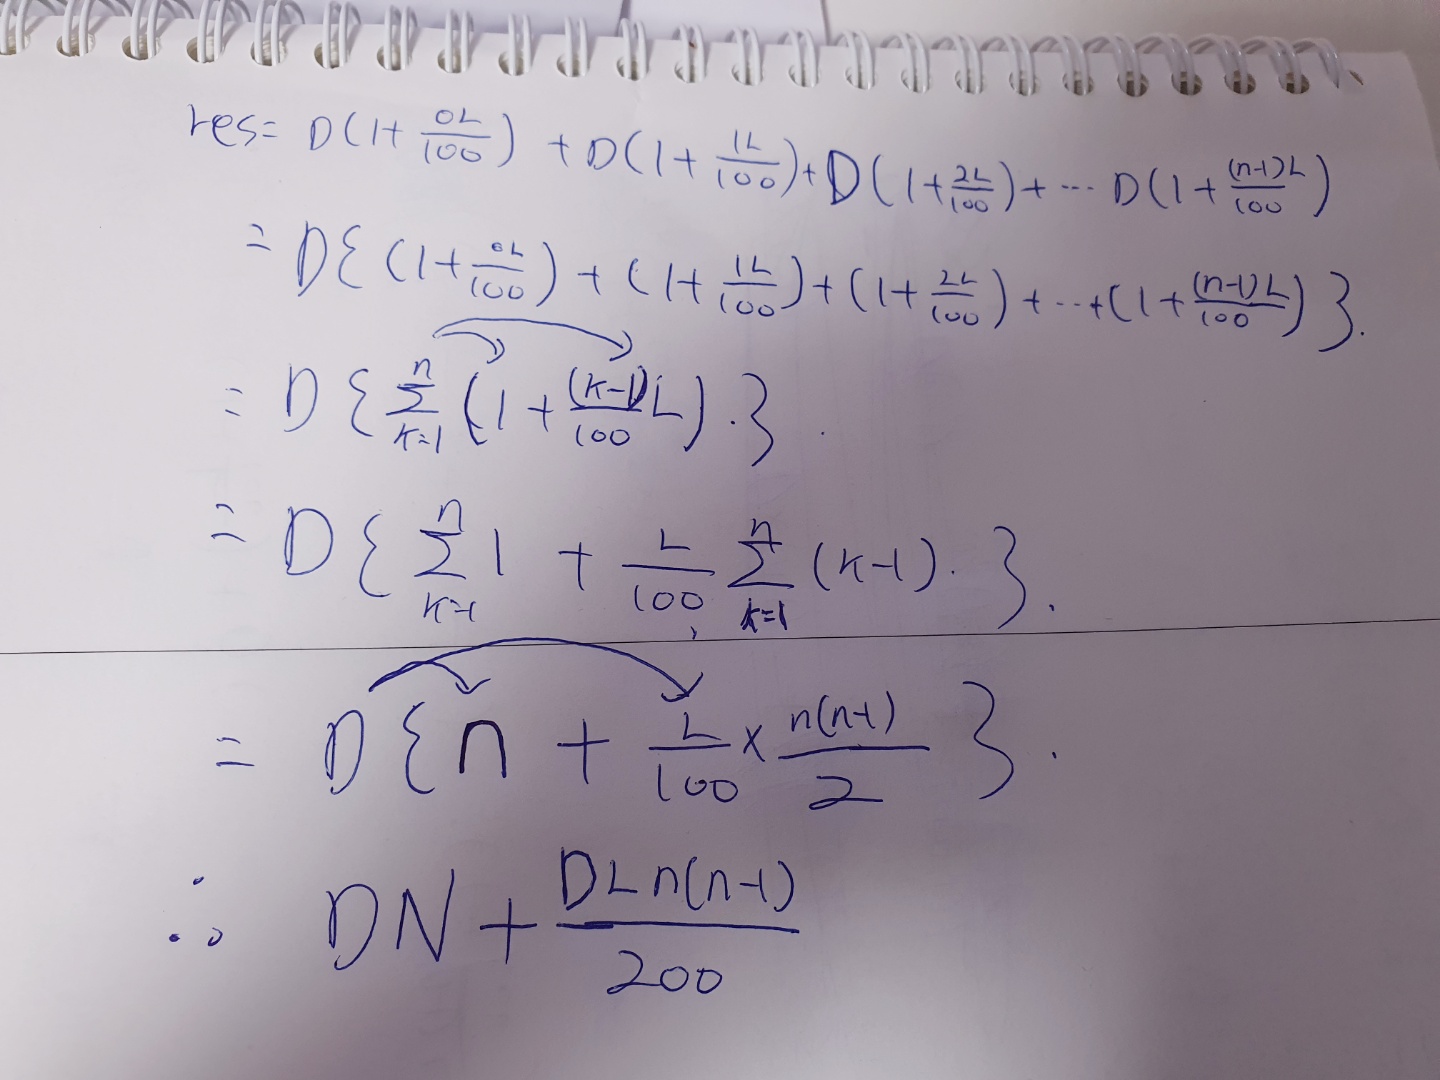 res= D(1+ 0L/100) + D(1+ 1L/100)+ D(1+ 2L/100)+ ··· D(1+ (n-1)L/100)
= D{(1+ 0L/100) + (1+ 1L/100)+(1+ 2L/100) + ··+(1+ (n-1)L/100)}.
= D{ n Σ k=1 (1+ (k-1)/100 L).}.
= D{ n Σ k=1 1 + L/100 n Σ k=1 (k-1).}.
= D{n + L/100 × n(n-1)/2 }.
∴ DN+ DLn(n-1)/200